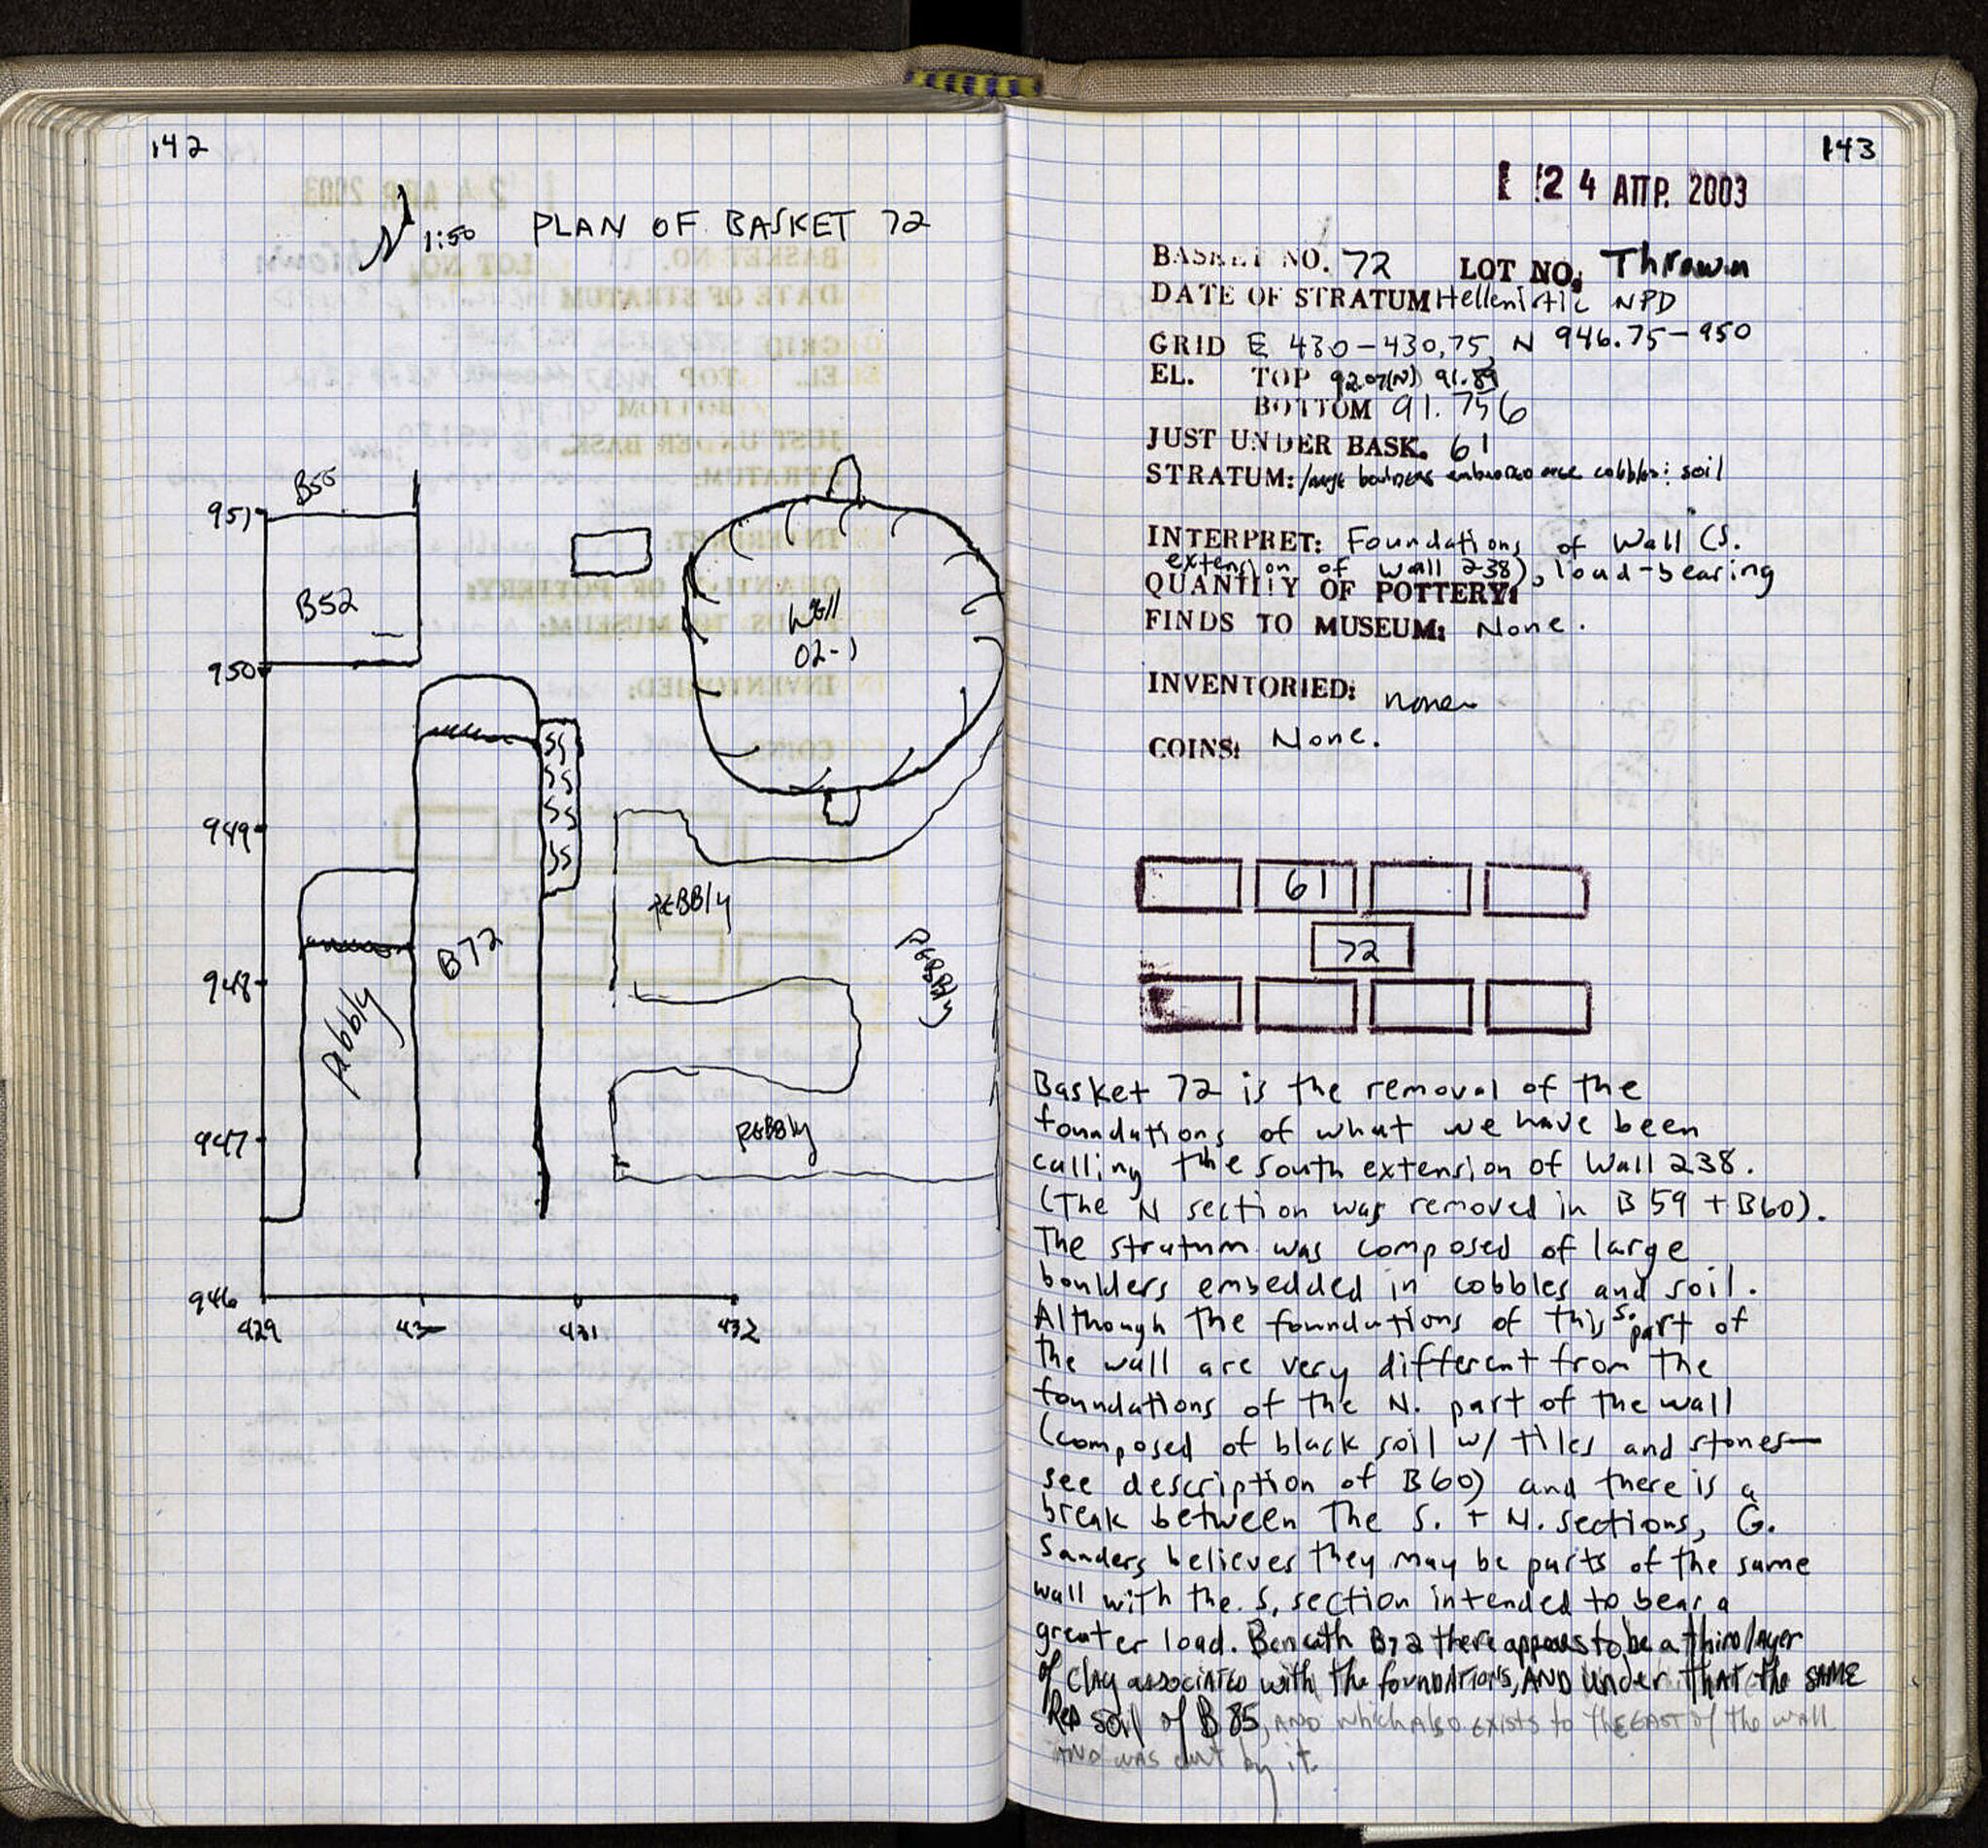 142
N 1:50 PLAN OF BASKET 72
B55
951
B52
Well
02-1
950
SS
SS
SS
SS
949
PEBBly
B72
PEBBly
948
pebbly
PEBBly
947
946
429 43— 431 432
143
24 ΑΠΡ. 2003
BASKET NO. 72 LOT NO. Thrown
DATE OF STRATUM Hellenistic NPD
GRID E 430-430,75, N 946.75-950
EL. TOP 92.07(N) 91.89
BOTTOM 91.756
JUST UNDER BASK. 61
STRATUM: large boulders cobbles: soil
INTERPRET: Foundations of Wall (S.
extension of wall 238), load-bearing
QUANTITY OF POTTERY:
FINDS TO MUSEUM: None.
INVENTORIED: none
COINS: None.
61
72
Basket 72 is the removal of the
foundations of what we have been
calling the south extension of Wall 238.
(The N section was removed in B59 + B60).
The stratum was composed of large
boulders embedded in cobbles and soil.
Although the foundations of this S. part of
the wall are very different from the
foundations of the N. part of the wall
(composed of black soil w/ tiles and stones—
see description of B60) and there is a
break between the S. + N. sections, G.
Sanders believes they may be parts of the same
wall with the S. section intended to bear a
greater load. Beneath B72 there appears to be a thin layer
of clay associated with the foundations, AND under that the SAME
Red soil of B 85, AND which also exists to the EAST of the wall
AND was cut by it.